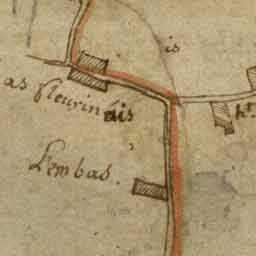 is
as fleurin dis
ht
Lembas.